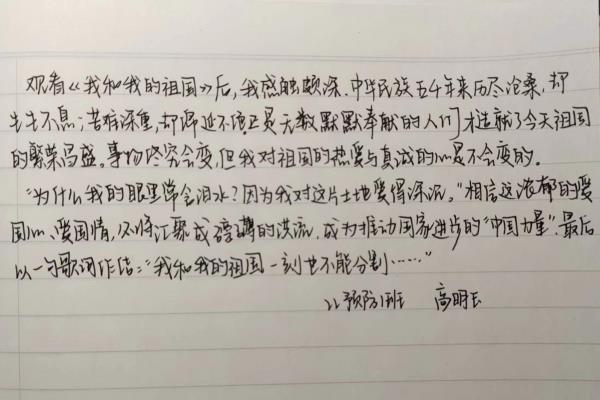 观看《我和我的祖国》后,我感触颇深.中华民族五千年来历尽沧桑,却
生生不息;苦难深重,却绵延不绝.正是无数默默奉献的人们才造就了今天祖国
的繁荣昌盛。事物终究会变,但我对祖国的热爱与真诚的心是不会变的。
"为什么我的眼里常含泪水?因为我对这片土地爱得深沉。"相信这浓郁的爱
国心、爱国情,必将汇聚成磅礴的洪流,成为推动国家进步的"中国力量".最后
以一句歌词作结:"我和我的祖国一刻也不能分割……"
预防1班 高明